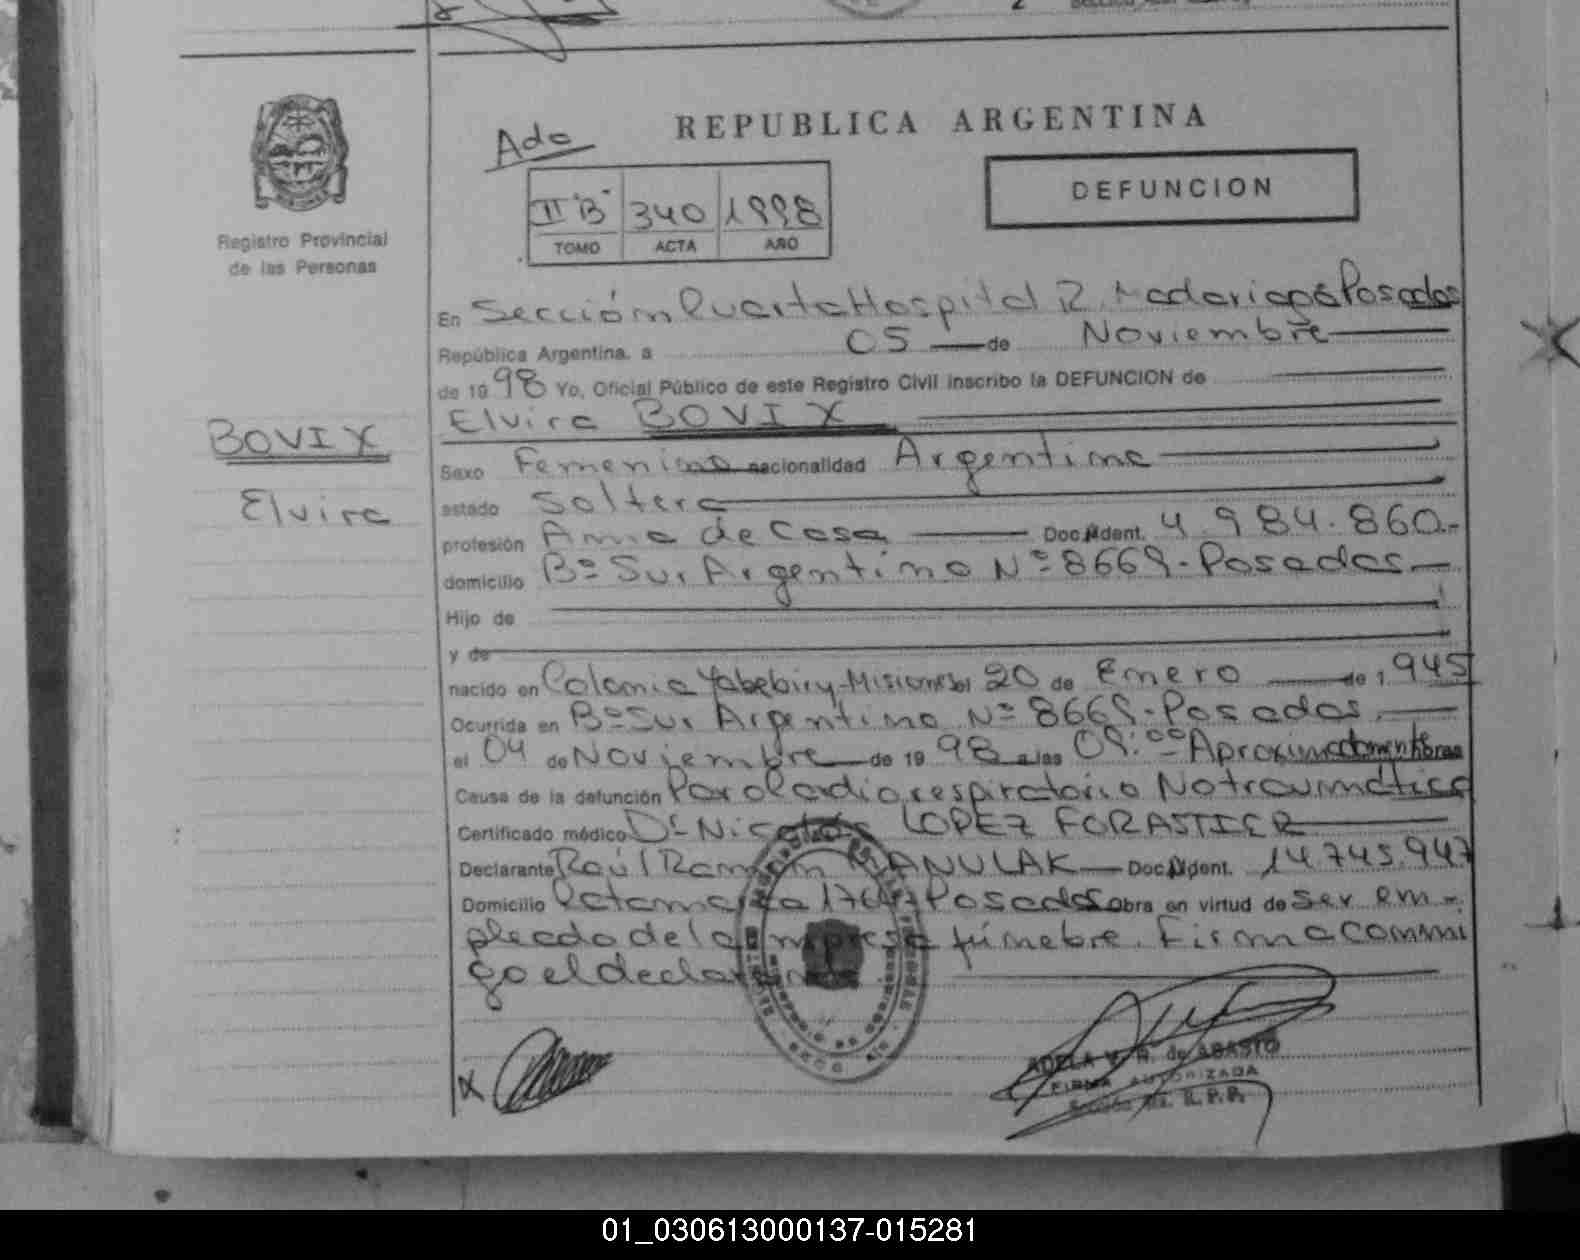 REPUBLICA ARGENTINA
Ado
DEFUNCION
II "B" 340 1998
TOMO ACTA AÑO
Registro Provincial
de las Personas
En Sección Cuarta Hospital R. Madariaga Posadas
República Argentina, a 05 de Noviembre
de 1998 Yo, Oficial Público de este Registro Civil inscribo la DEFUNCION de
Elvira BOVIX
BOVIX
Elvira
Sexo Femenino nacionalidad Argentina
estado Soltera
profesión Ama de Casa Doc. Ident. 4.984.860.-
domicilio Bº Sur Argentino Nº 8669-Posadas
Hijo de
y de
nacido en Colonia Yabebiry-Misiones el 20 de Enero de 1.945
Ocurrida en Bº Sur Argentino Nº 8669-Posadas
el 04 de Noviembre de 1998 a las 09:00 Aproximadamente horas
Causa de la defunción Paro Cardiorespiratorio No traumático
Certificado médico Dr Nicolás LOPEZ FORASTIER
Declarante Raúl Ramón Doc. Ident. 14.745.947
Domicilio Catamarca Posadas obra en virtud de ser em-
pleado de la empresa fúnebre. Firma conmi
go el declarante
ADELA V. R. de ABASTO
FIRMA AUTORIZADA
R.P.P.
01_030613000137-015281